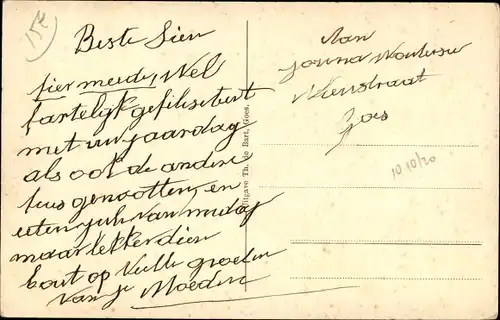 15€
Beste Sien
hier mede Wel
hartelijk gefiliseteert
met uw jaardag
als ook de andere
huis genootten, en
eeten jule van midag
maar lekker dien
bout op Vulle groeten
van je Moeder
Uitgave Th. de Bart, Goes.
Aan
Goes
10 10/20